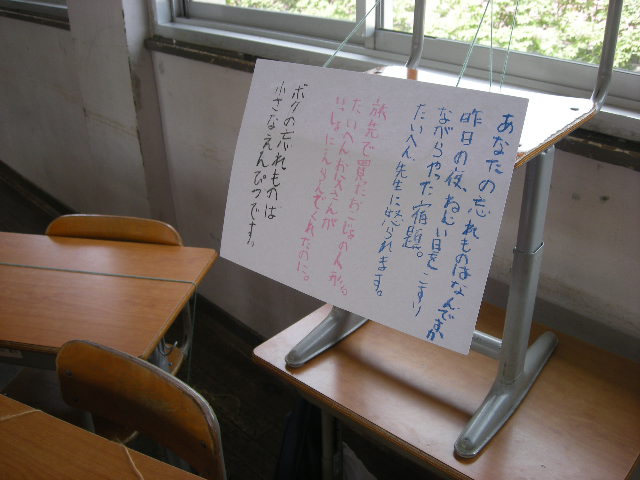 あなたの忘れものはなんですか
昨日の夜、ねむい目をこすり
ながらやった宿題。
たいへん、先生に怒られます。
旅先で買たおこじょの人形。
たいへん、お父さんが
いっしょにえらんでくれたのに。
ボクの忘れものは
小さなえんぴつです。